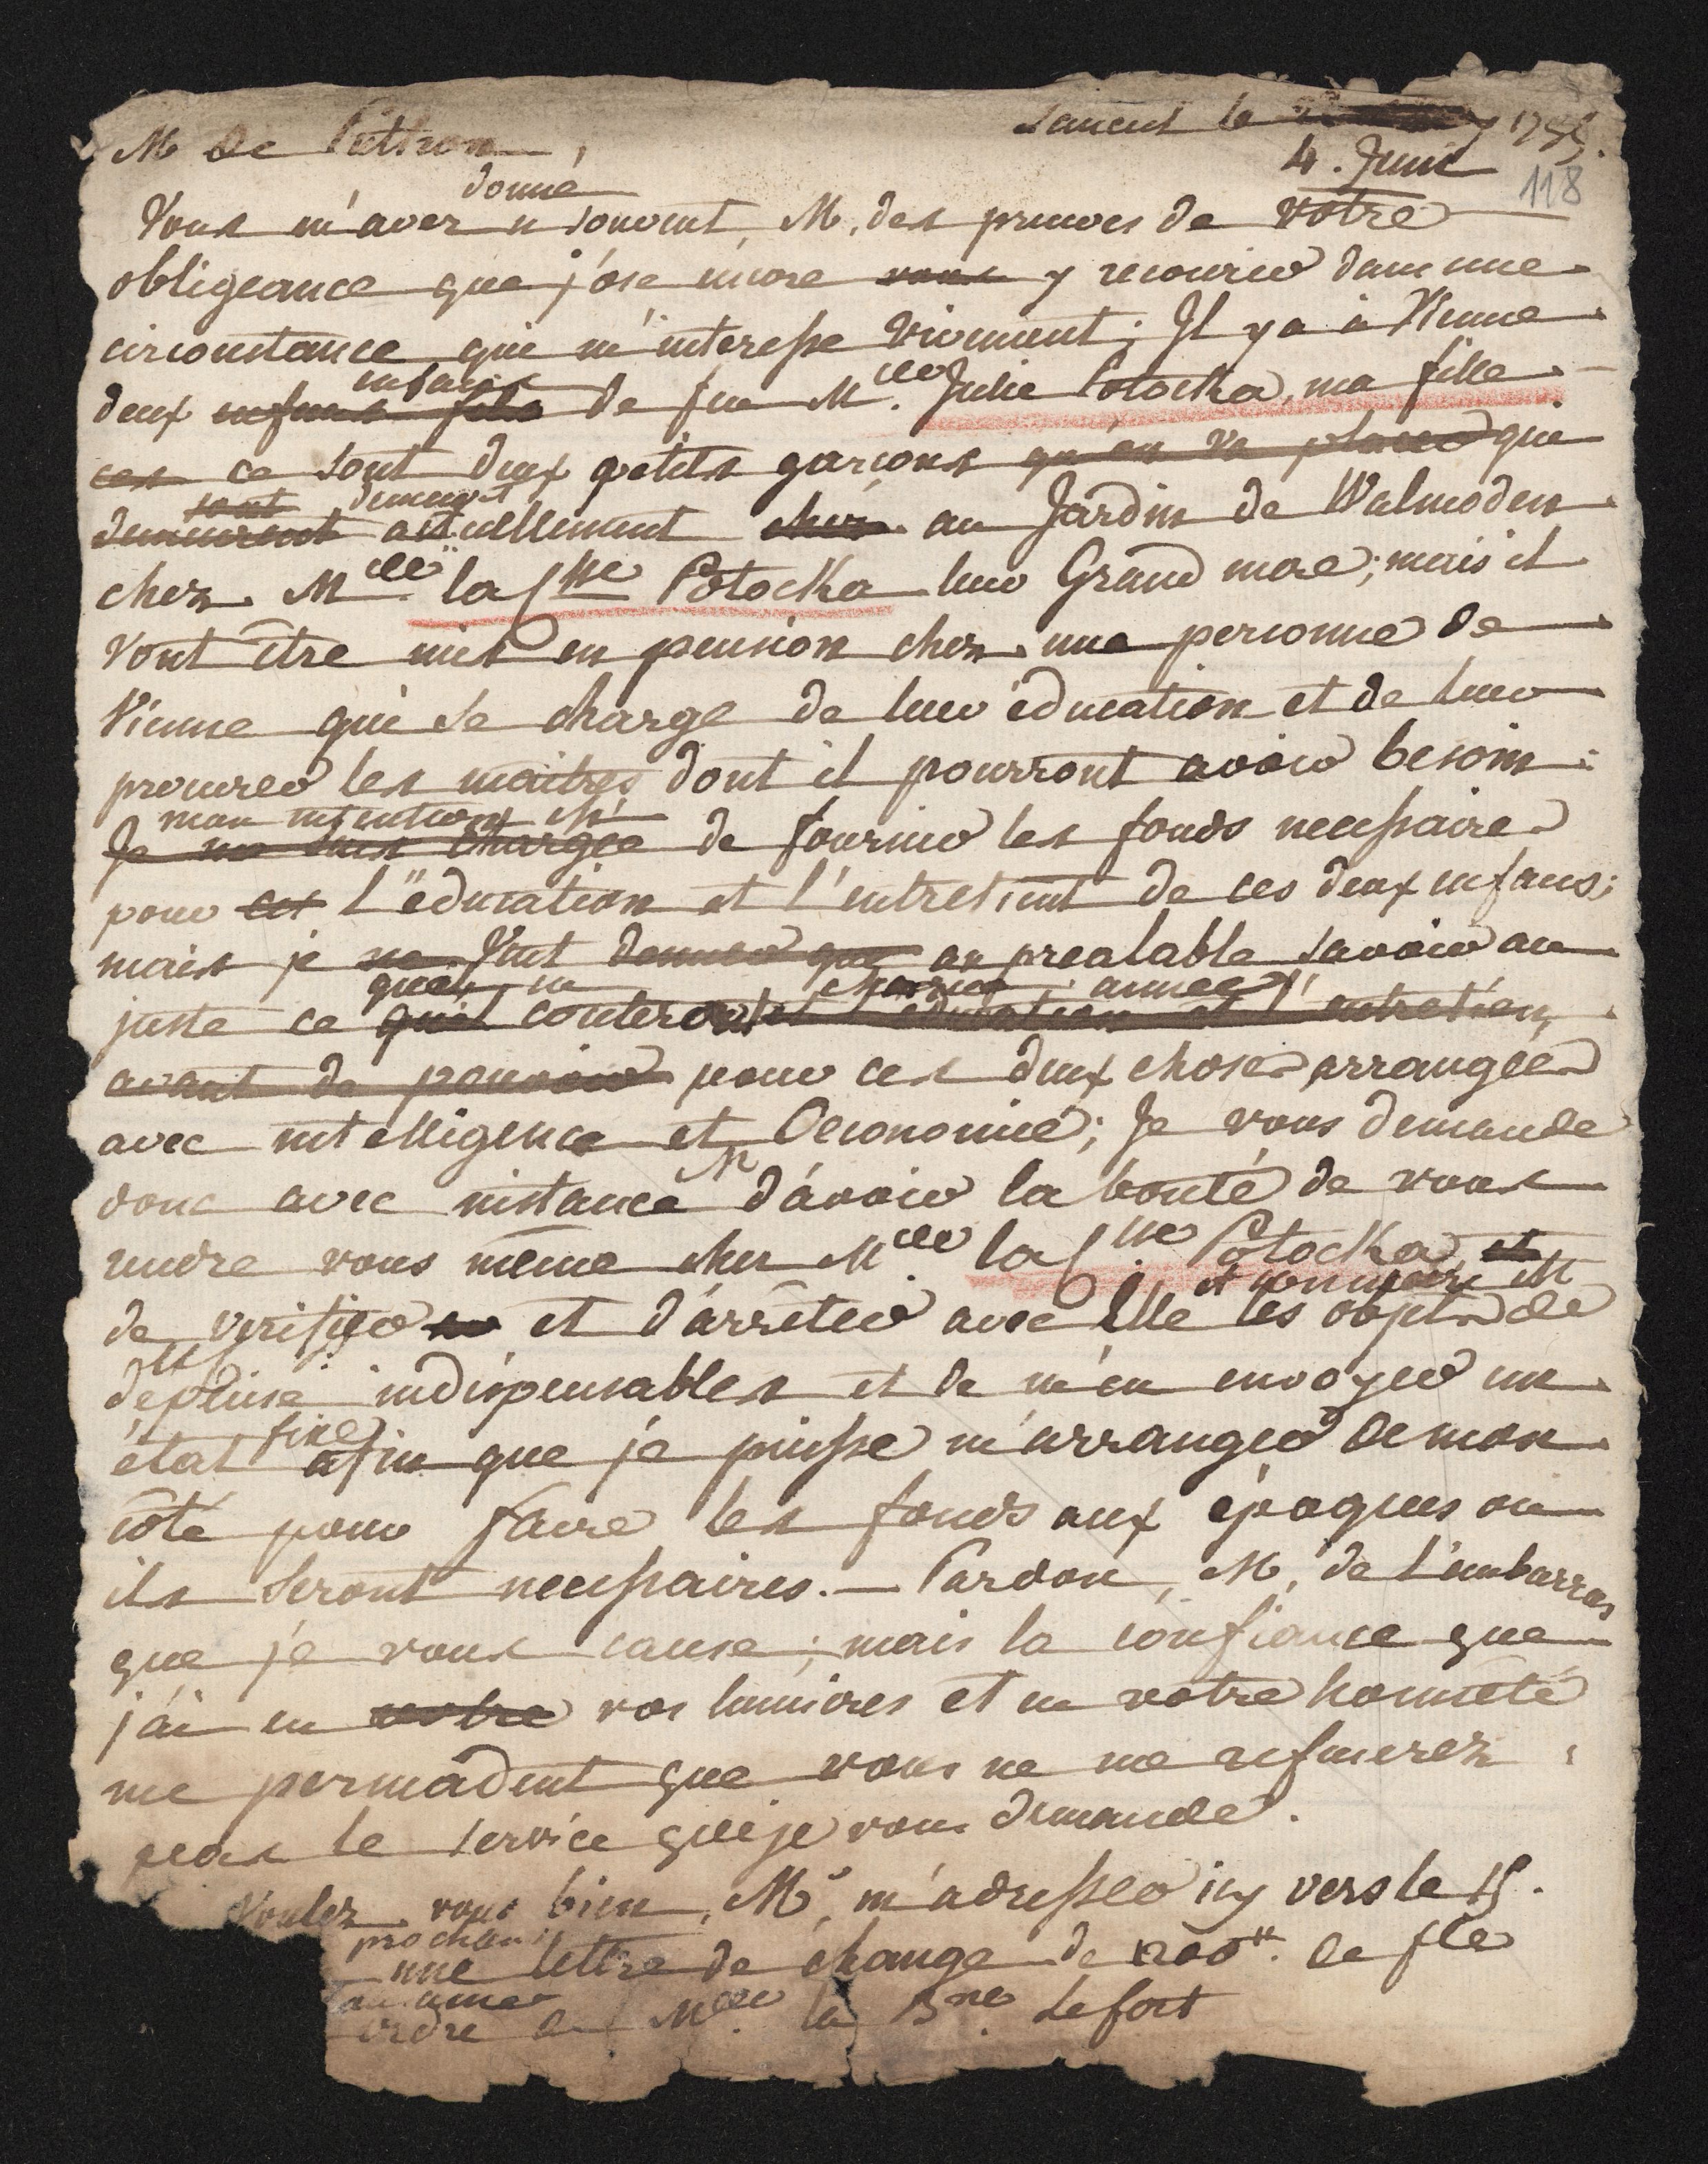 M de Puthon, Lancut le 1795.
4. Juin
118
donné
Vous m'avez si souvent, M, des preuves de votre
obligeance que j'ose encore vous y recourir dans une
circonstance qui m'interesse vivement; Il y a à Vienne
enfans
deux enfans fils de feu Mde Julie Potocka, ma fille
ces ce sont deux petits garçons qu'on va placer qui
sont demeurent
demeurent actuellement chez au Jardin de Walmoden
chez Mde la Csse Potocka leur Grand mere; mais il
vont être mis en pension chez une personne de
Vienne qui se charge de leur éducation et de leur
procurer les maîtres dont il pourront avoir besoin:
mon intention est
Je me suis chargée de fournir les fonds necessaires
pour cet l'éducation et l'entretient de ces deux enfans;
mais je ne veut donner que au prealable savoir au
chaque année
juste ce qu'il couteront l'éducation et l'entretien,
avant de pouvoir pour ces deux choses arrangées
avec intelligence et Oeconomie; Je vous demande
M
donc avec instance d'avoir la bonté de vous
rendre vous même chez Mde la Csse Potocka, et
de verifier et d'arrêter avec Elle les objets de
depense indispensables et de m'en envoyer un
fixe
état afin que je puisse m'arranger de mon
côté pour faire les fonds aux époques ou
ils seront necessaires. — Pardon, M, de l'embarras
que je vous cause; mais la confiance que
j'ai en votre vos lumieres et en votre honnêteté
me persuadent que vous ne me refuserez
pas le service que je vous demande.
Voulez vous bien, M, m'adresser icy vers le 15.
prochain
une lettre de change de 200#. de fl
ordre de Mde la Bne. Lefort